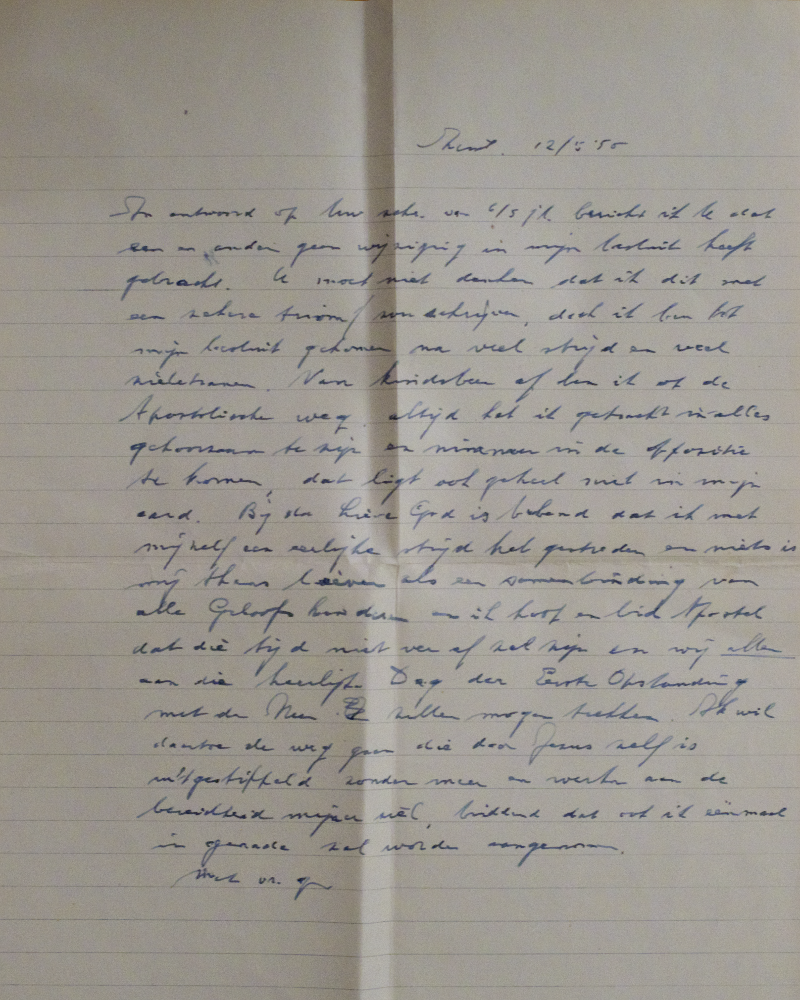 12/5 '55
In antwoord op Uw schr. van 6/5 jl. bericht ik U dat
een en ander geen wijziging in mijn besluit heeft
gebracht. U moet niet denken dat ik dit met
een zekere triomf zou schrijven, doch ik ben tot
mijn besluit gekomen na veel strijd en veel
zieletranen. Van kindsbeen af ben ik op de
Apostolische weg, altijd heb ik getracht in alles
gehoorzaam te zijn en nimmer in de oppositie
te komen, dat ligt ook geheel niet in mijn
aard. Bij de Lieve God is bekend dat ik met
mijzelf een eerlijke strijd heb gestreden en niets is
mij thans liever als een samenbinding van
alle Geloofs kinderen en ik hoop en bid Apostel
dat die tijd niet ver af zal zijn en wij allen
aan die heerlijke Dag der Eerste Opstanding
met de Heer zullen mogen trekken. Ik wil
daartoe de weg gaan die door Jezus zelf is
uitgestippeld zonder meer en werken aan de
bereidheid mijner ziel, biddend dat ook ik éénmaal
in genade zal worden aangenomen.
Met vr. gr.